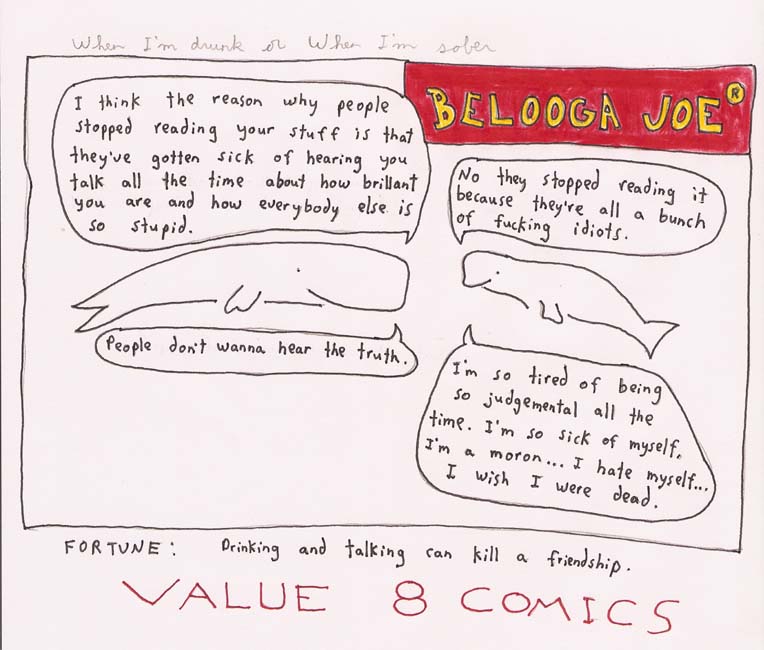 When I'm drunk or When I'm sober
BELOOGA JOE®
I think the reason why people
stopped reading your stuff is that
they've gotten sick of hearing you
talk all the time about how brillant
you are and how everybody else is
so stupid.
No they stopped reading it
because they're all a bunch
of fucking idiots.
People don't wanna hear the truth.
I'm so tired of being
so judgemental all the
time. I'm so sick of myself.
I'm a moron... I hate myself...
I wish I were dead.
FORTUNE: Drinking and talking can kill a friendship.
VALUE 8 COMICS